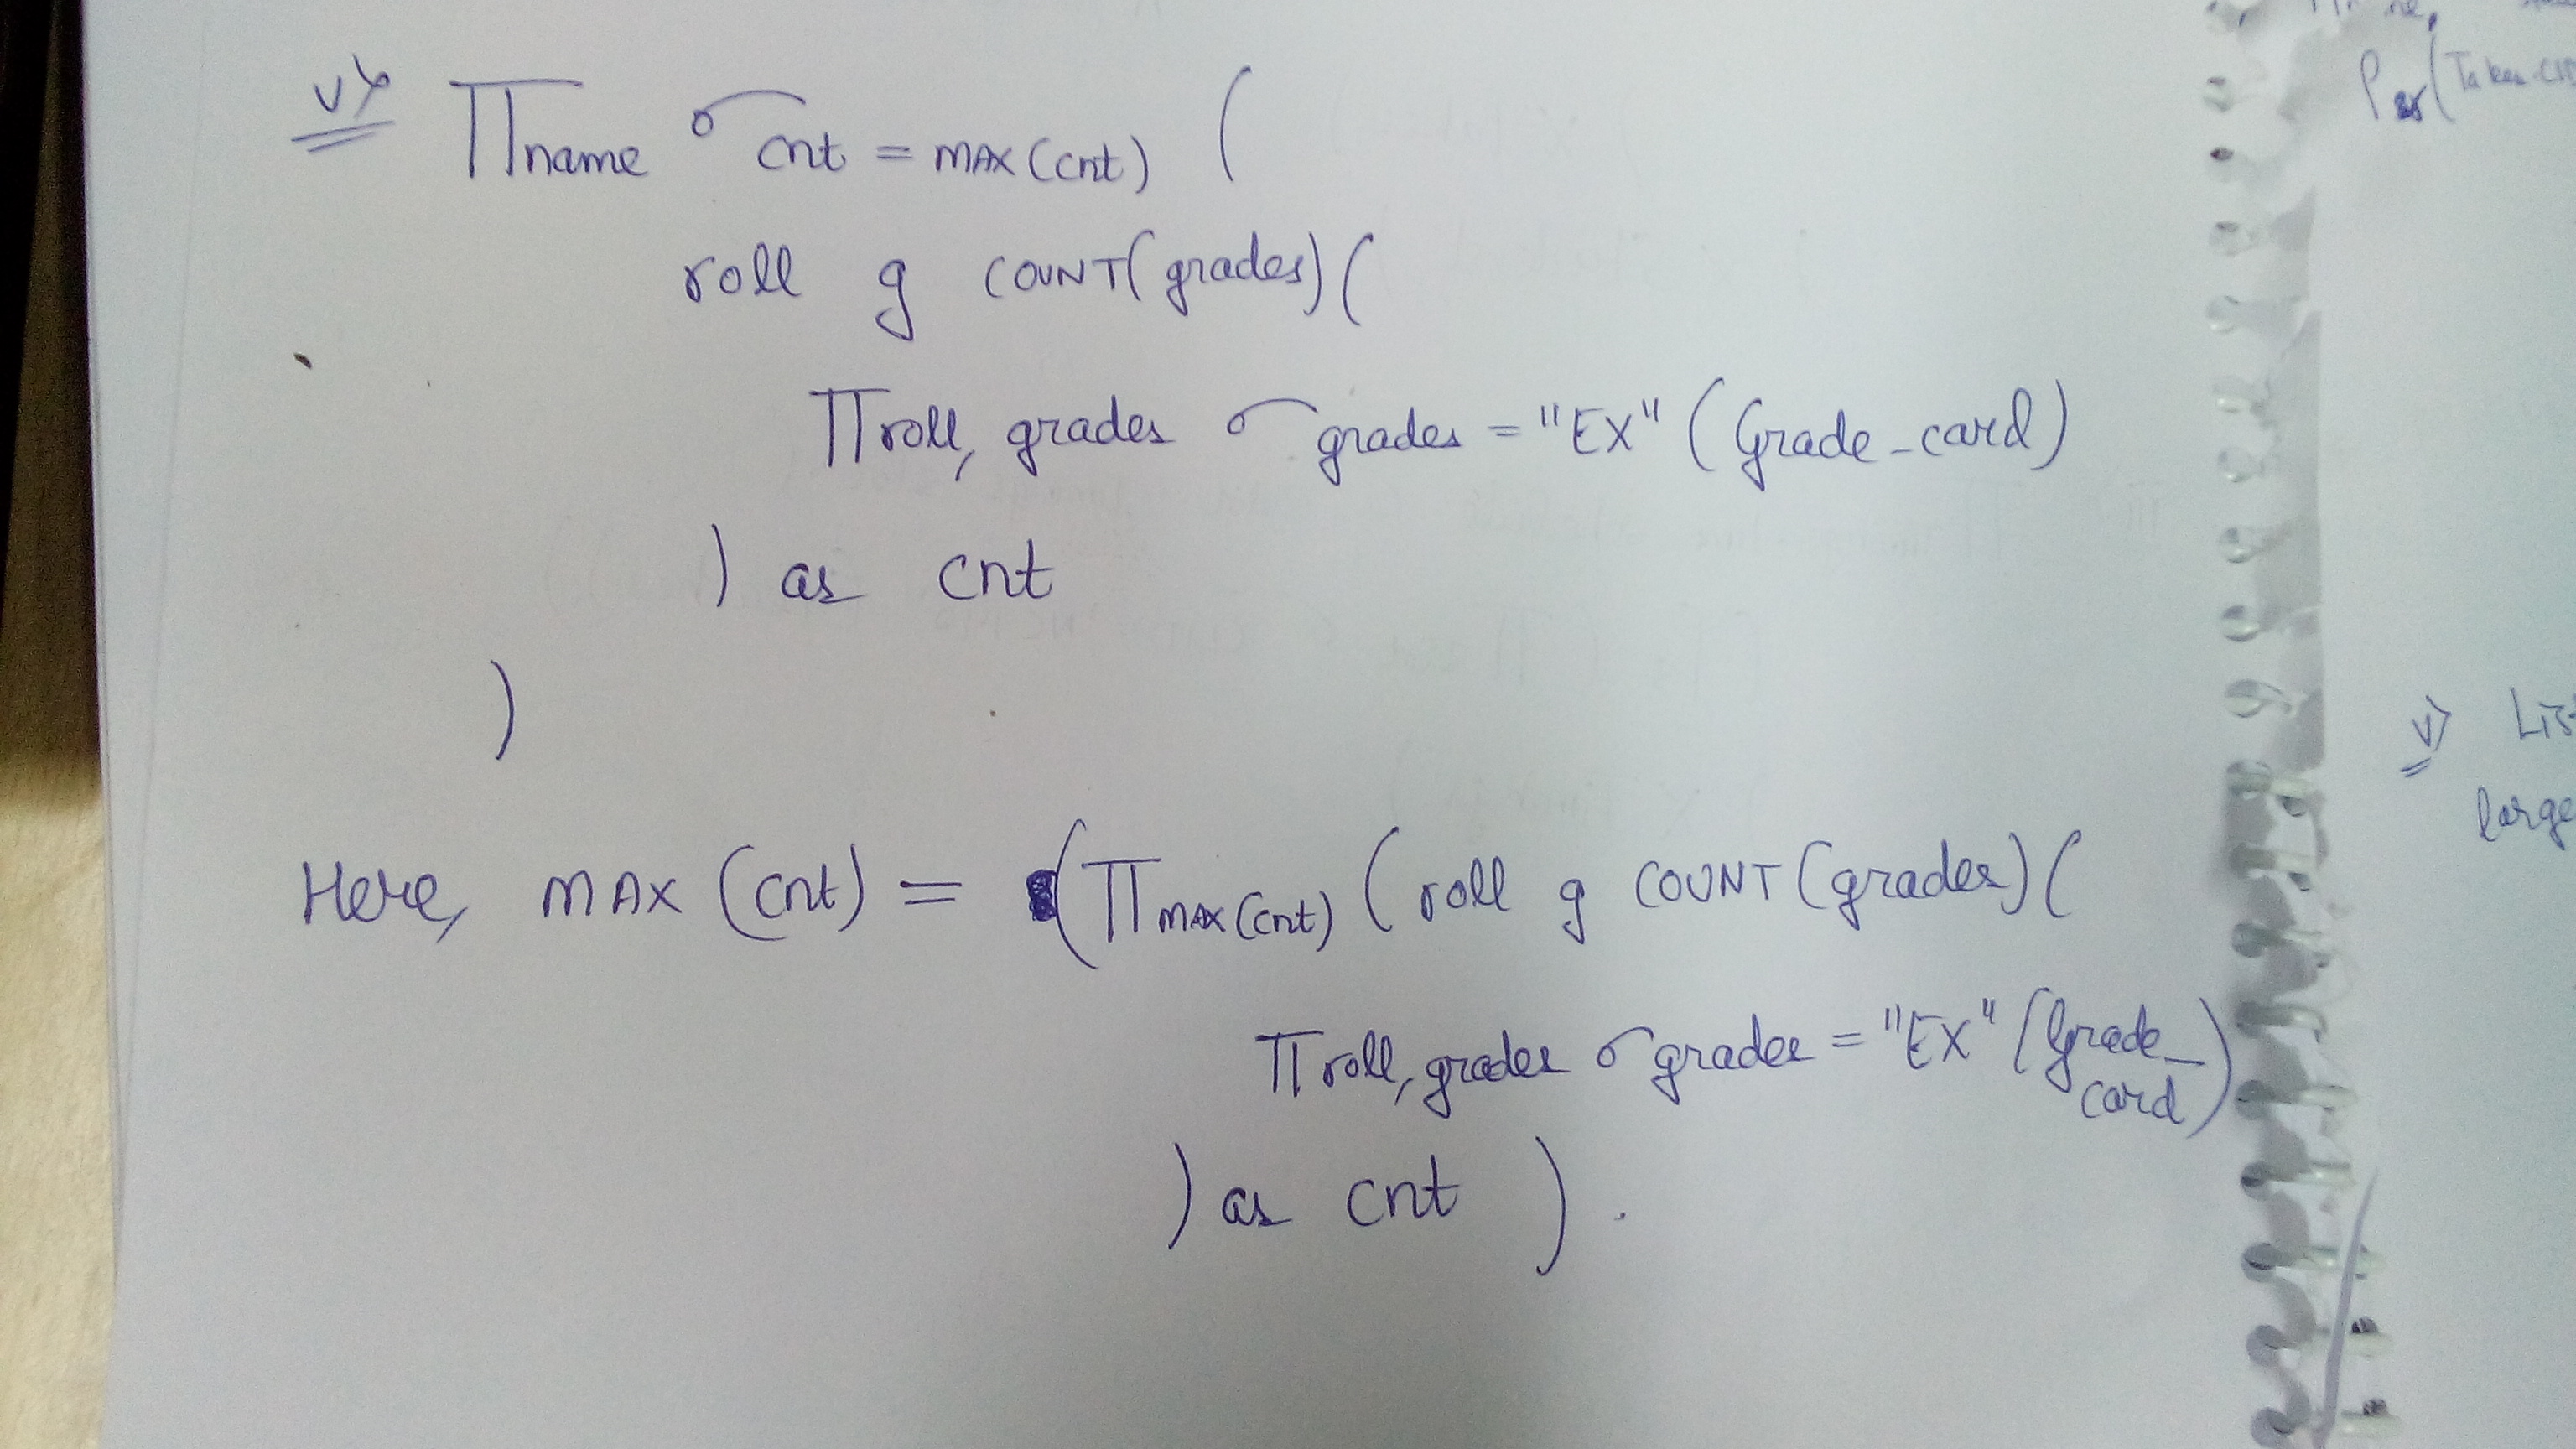 v> Πname σ cnt = MAX(cnt) (
roll g COUNT(grades)(
Πroll, grades σ grades = "EX" (Grade_card)
) as cnt
)
Here, MAX (cnt) = (Π MAX(cnt) ( roll g COUNT(grades)(
Π roll, grades σ grades = "EX" (Grade_
card)
) as cnt ) .
(Taken.
v> List
large